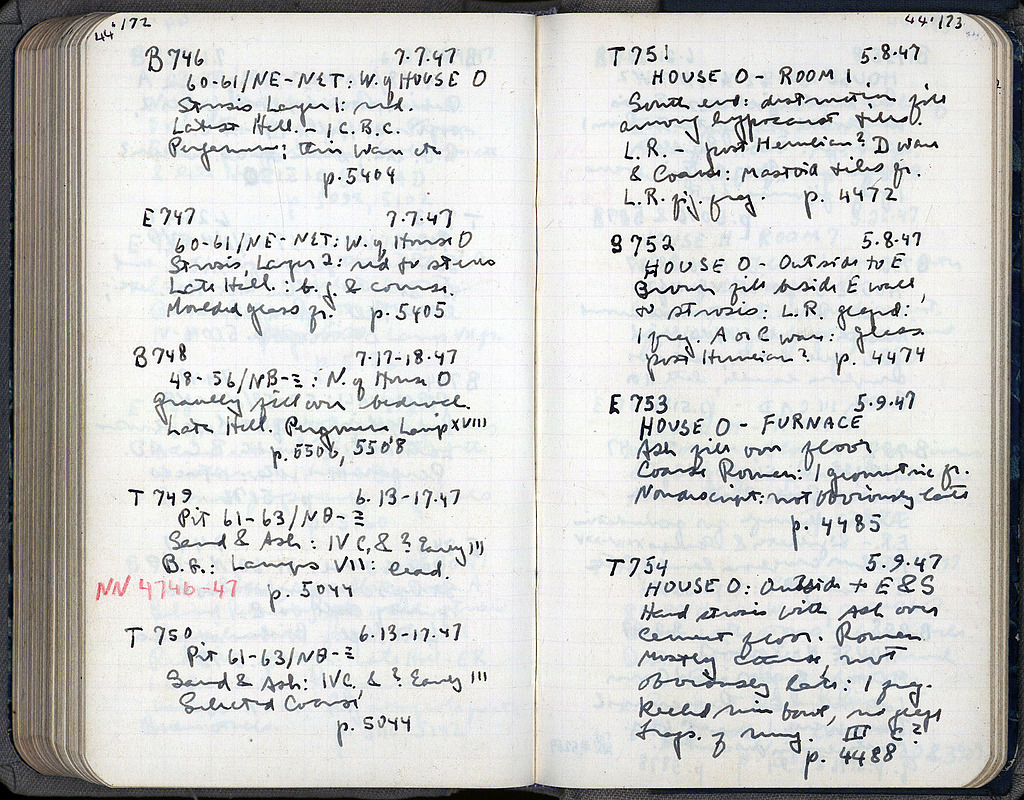 44'172
B 746 7.7.47
60-61/NE-NET: W. of HOUSE O
Strosis Layer 1: red.
Latest Hell. - 1 C. B.C.
Pergamene; thin ware etc
p. 5404
E 747 7.7.47
60-61/NE-NET: W. of House O
Strosis, Layer 2: red to stereo
Late Hell.: b.g. & coarse.
Moulded glass fr. p. 5405
B 748 7.17-18.47
48-56/NB-Ξ: N. of House O
gravelly fill over bedrock.
Late Hell. Pergamene Lamp XVIII
p. 5506, 5508
T 749 6.13-17.47
Pit 61-63/NΘ-Ξ
Sand & Ash: IV C, & ? Early III
B.G.: Lamps VII: lead.
NN 4746-47 p. 5044
T 750 6.13-17.47
Pit 61-63/NΘ-Ξ
Sand & Ash: IV C, & ? Early III
Selected Coarse
p. 5044
44'173
T 751 5.8.47
HOUSE O - ROOM 1
South end: destruction fill
among hypocaust tiles.
L.R. - post Herulian? D ware
& Coarse: Mastoid tiles fr.
L.R. fig. frag. p. 4472
B 752 5.8.47
HOUSE O - Outside to E
Brown fill beside E wall,
to strosis: L.R. glazed:
1 frag. A or C ware: glass.
post Herulian? p. 4474
E 753 5.9.47
HOUSE O - FURNACE
Ash fill over floor
Coarse Roman: 1 geometric fr.
Nondescript: not obviously late
p. 4485
T 754 5.9.47
HOUSE O: Outside to E & S
Hard strosis with Ash over
cement floor. Roman.
Mostly coarse, not
obviously late: 1 frag.
Reeled rim bowl, no glaze
frags. of rung. III C?
p. 4488